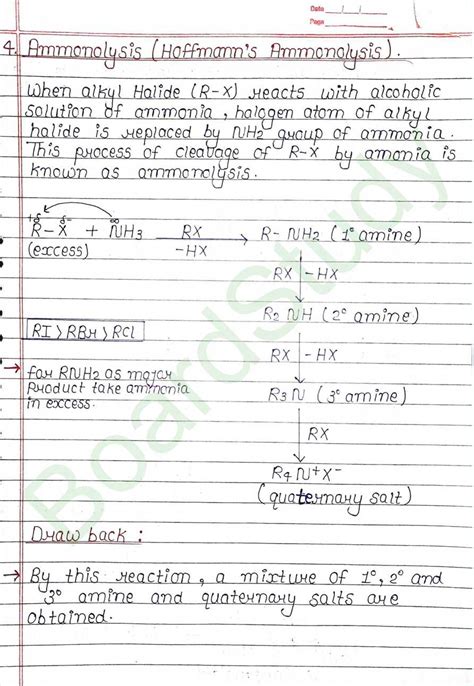 Date __/__/__
Page
4. Ammonolysis (Hoffmann's Ammonolysis).
When alkyl Halide (R-X) reacts with alcoholic
solution of ammonia, halogen atom of alkyl
halide is replaced by NH2 group of ammonia.
This process of cleavage of R-X by amonia is
known as ammonolysis.
+δ δ- ∞
R-X + NH3 RX -HX → R-NH2 (1° amine)
(excess)
RX -HX
R2 NH (2° amine)
RI > RBr > RCl
RX -HX
→ for RNH2 as major
product take ammonia
in excess.
R3 N (3° amine)
RX
R4 N+X-
(quaternary salt)
Draw back :
→ By this reaction, a mixture of 1°, 2° and
3° amine and quaternary salts are
obtained.
BoardStudy